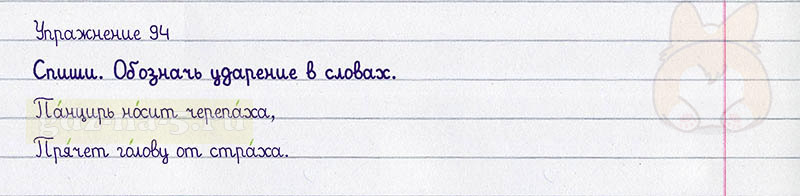 Упражнение 94
Спиши. Обозначь ударение в словах.
Па́нцирь но́сит черепа́ха,
Пря́чет го́лову от стра́ха.